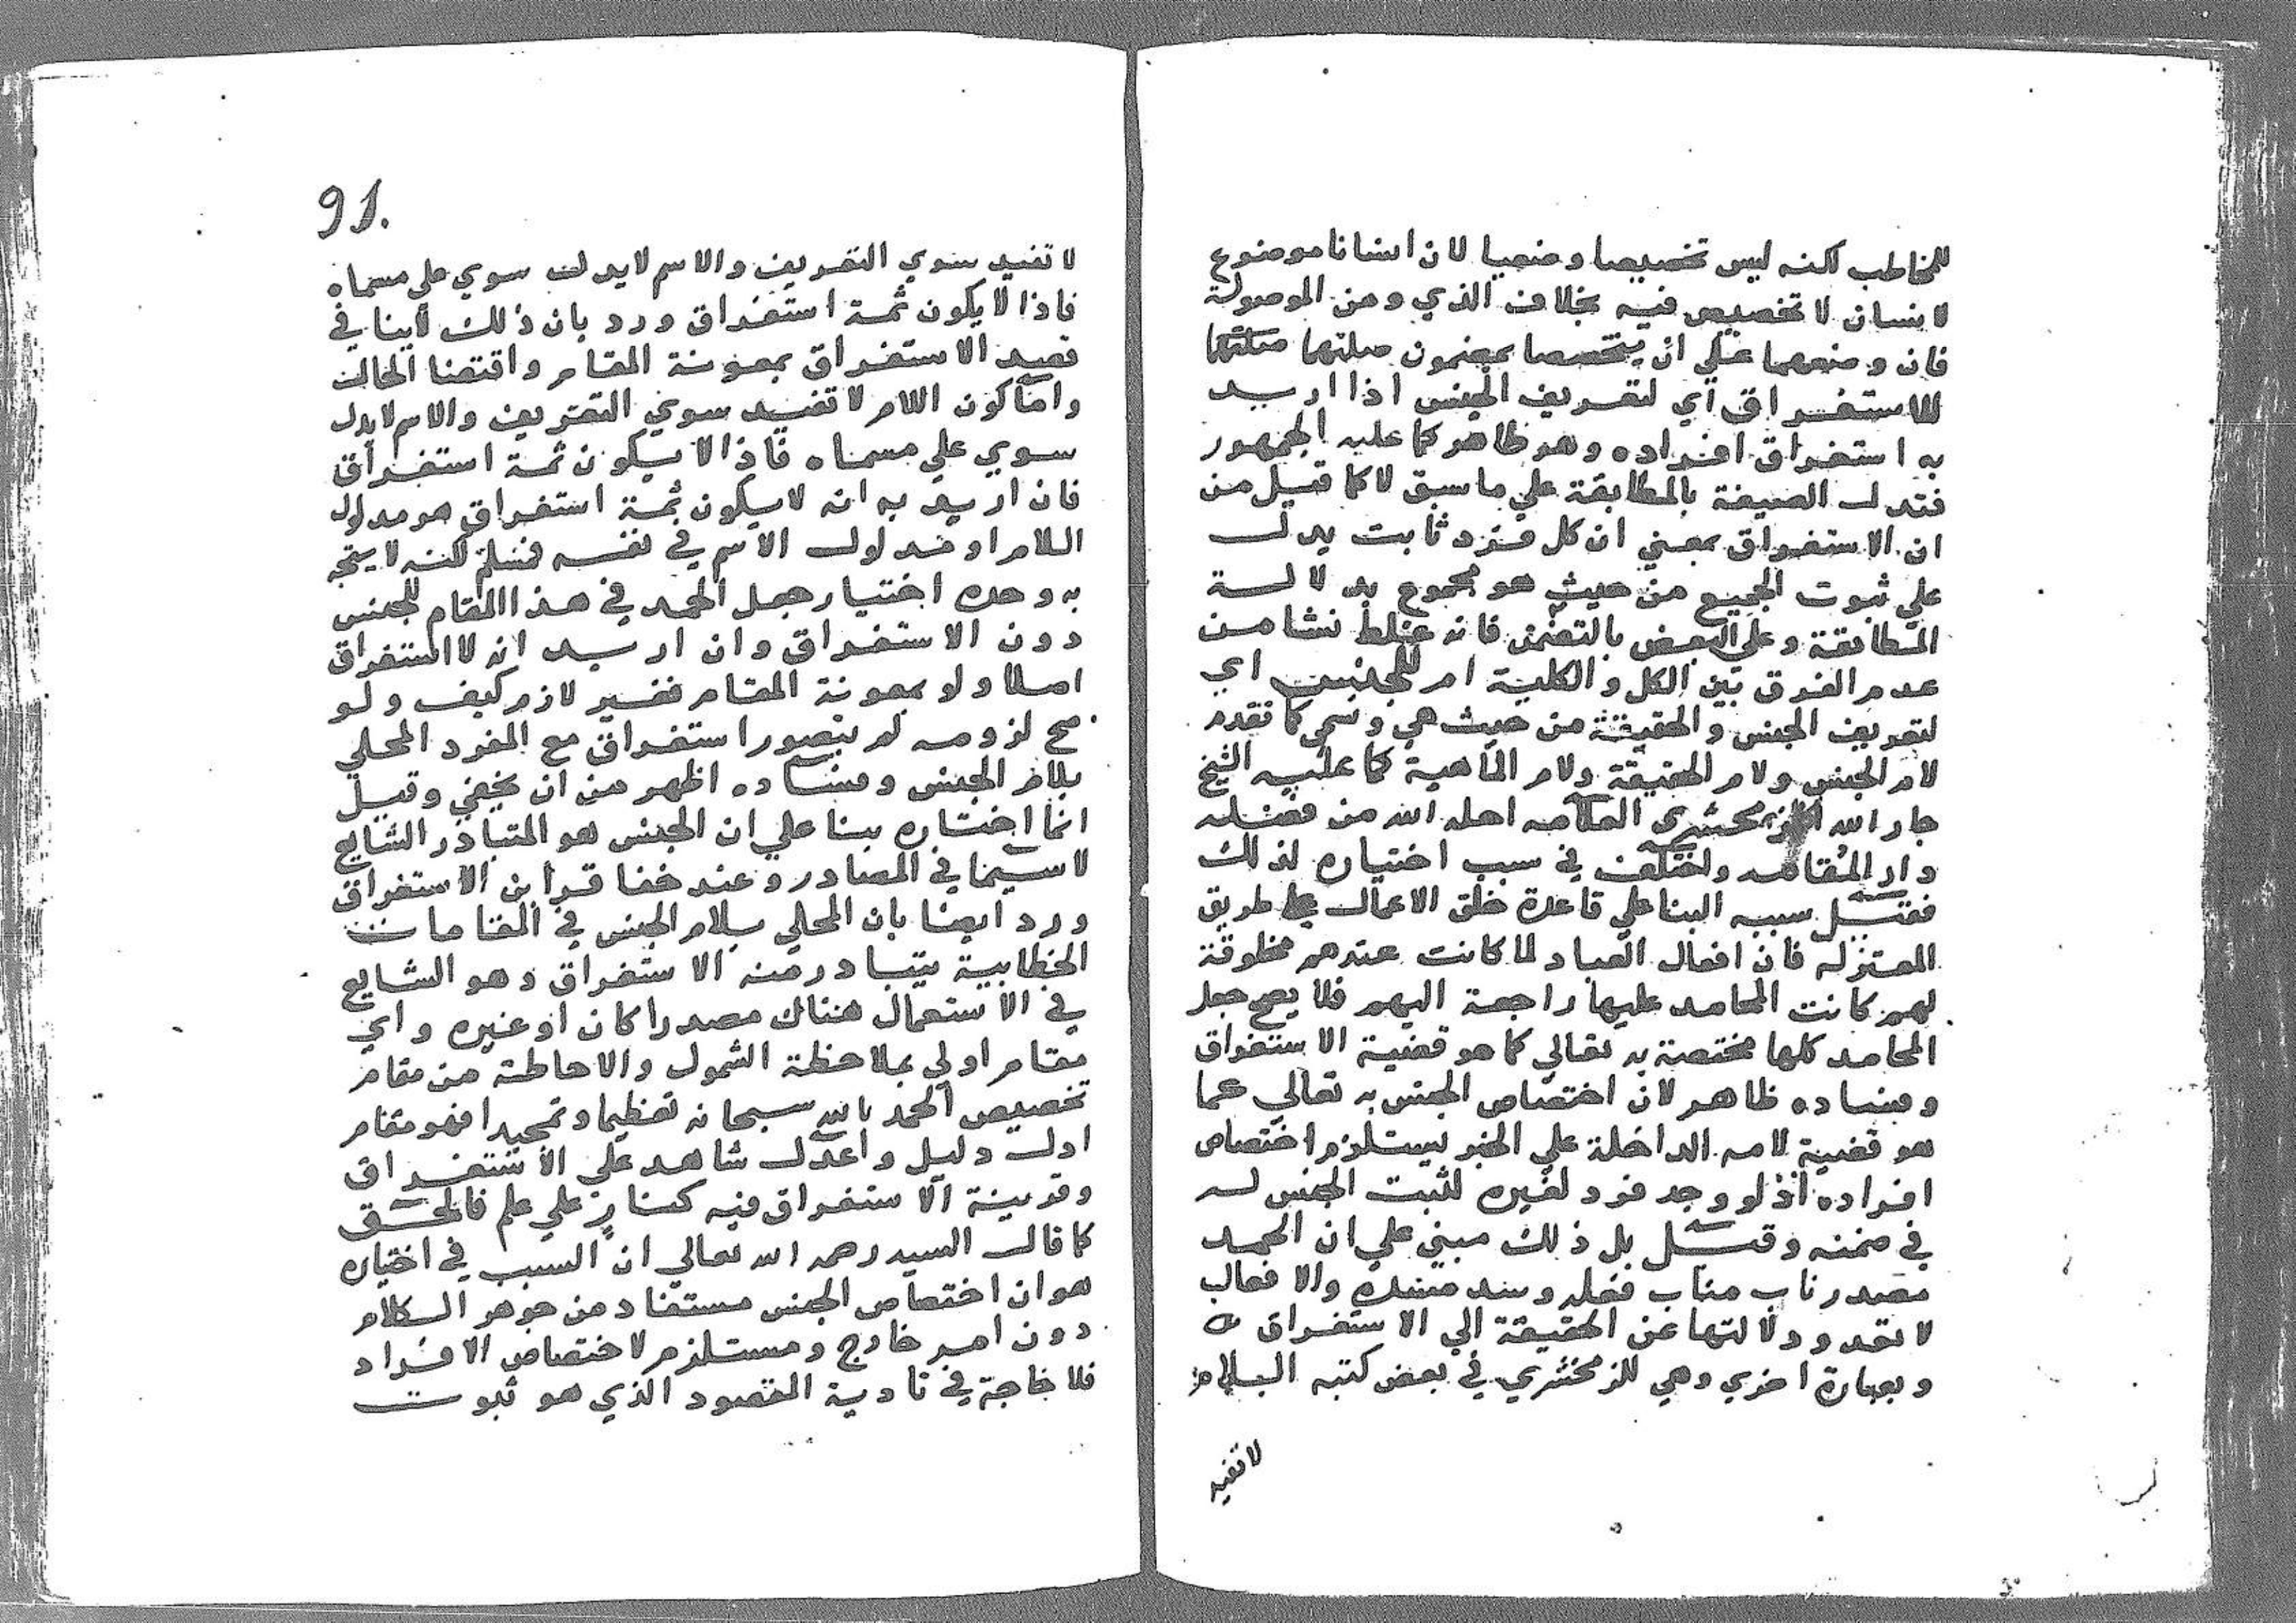 للمخاطب لكنه ليس تخصيصا وضعيا لان انسانا موضوع
لانسان لا تخصيص فيه بخلاف الذي ومن الموصولة
فان وضعهما على ان يتخصصا بمضمون صلتهما
للاستغراق اي لتعريف الجنس اذا اريد
به استغراق افراده وهو ظاهر كما عليه الجمهور
فتدل الصيغة بالمطابقة علي ما سبق لا كما قيل من
ان الاستغراق بمعني ان كل فرد ثابت يدل
علي ثبوت الجميع من حيث هو مجموع بدلالة
المطابقة وعلي البعض بالتضمن فانه غلط نشا من
عدم الفرق بين الكل والكلية ام للجنس اي
لتعريف الجنس والحقيقة من حيث هي وسمي كما تقدم
لام الجنس ولام الحقيقة ولام الماهية كما عليه الشيخ
جار الله الزمخشري العلامه احله الله من فضله
دار المقامه واختلف في سبب اختياره لذلك
فقيل سببه البنا علي قاعدة خلق الاعمال علي طريق
المعتزله فان افعال العباد لما كانت عندهم مخلوقة
لهم كانت المحامد عليها راجعة اليهم فلا يصح جعل
المحامد كلها مختصة به تعالي كما هو قضية الاستغراق
وفساده ظاهر لان اختصاص الجنس به تعالي كما
هو قضية لامه الداخلة علي الخبر يستلزم اختصاص
افراده اذ لو وجد فرد لغيره لثبت الجنس له
في ضمنه وقيل بل ذلك مبني علي ان الحمد
مصدر ناب مناب فعله وسد مسده والافعال
لا تعدو دلالتها عن الحقيقة الي الاستغراق
وبعبارة اخري وهي للزمخشري في بعض كتبه اللام
لا تفيد
91.
لا تفيد سوي التعريف والاسم لا يدل سوي علي مسماه
فاذا لا يكون ثمة استغراق ورد بان ذلك لا ينافي
قصد الاستغراق بمعونة المقام واقتضا الحال
واما كون اللام لا تفيد سوي التعريف والاسم لا يدل
سوي علي مسماه فاذا لا يكون ثمة استغراق
فان اريد به انه لا يكون ثمة استغراق هو مدلول
اللام او مدلول الاسم في نفسه فمسلم لكنه لا يتجه
به وحده اختيار جعل الحمد في هذا المقام للجنس
دون الاستغراق وان اريد انه لا استغراق
اصلا ولو بمعونة المقام فغير لازم كيف ولو
صح لزومه لم يتصور استغراق مع المفرد المحلي
بلام الجنس وفساده اظهر من ان يخفي وقيل
انما اختاره بنا علي ان الجنس هو المتبادر الشايع
لا سيما في المصادر وعند خفا قراين الاستغراق
ورد ايضا بان المحلي بلام الجنس في المقامات
الخطابية يتبادر منه الاستغراق وهو الشايع
في الاستعمال هناك مصدرا كان او غيره واي
مقام اولي بملاحظة الشمول والاحاطة من مقام
تخصيص الحمد بالله سبحانه تعظيما وتمجيدا فهو مقام
ادل دليل واعدل شاهد علي الاستغراق
وقرينة الاستغراق فيه كنار علي علم فالحق
كما قال السيد رحمه الله تعالي ان السبب في اختياره
هو ان اختصاص الجنس مستفاد من جوهر الكلام
دون امر خارج ومستلزم لاختصاص الافراد
فلا حاجة في تادية المقصود الذي هو ثبوت